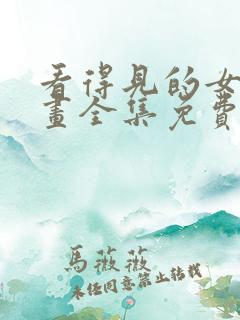 看得见的女
畫全集免費
馬薇薇
未任同意禁止转载